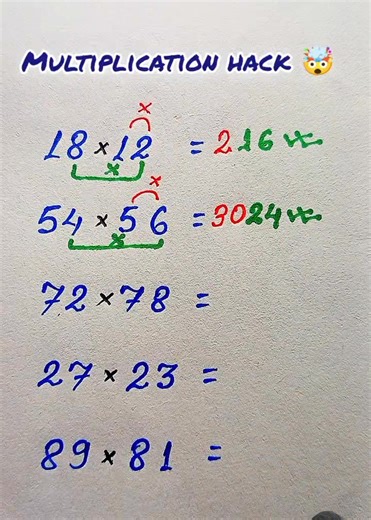 MULTIPLICATION HACK 🤯
x
18 × 12 = 216
x
x
54 × 56 = 3024
x
72 × 78 =
27 × 23 =
89 × 81 =